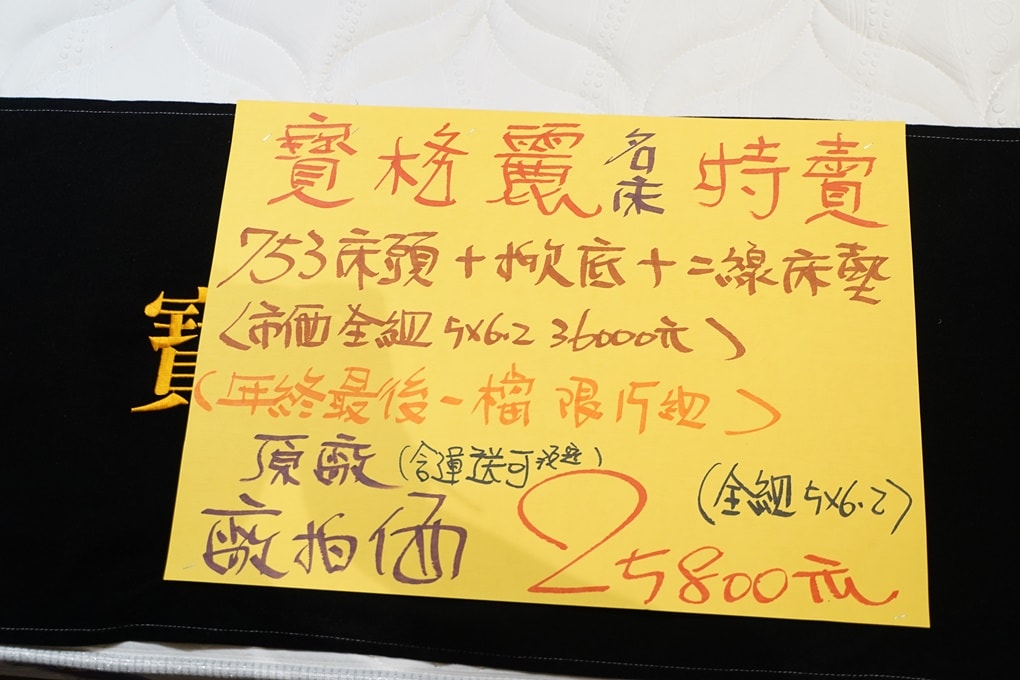 寶格麗名床特賣
753床頭+掀底+二線床墊
(市価全組5x6.2 36000元)
(年終最後一檔 限15組)
原廠(含運送可
(全組5x6.2)
廠拍価
25800元
寶